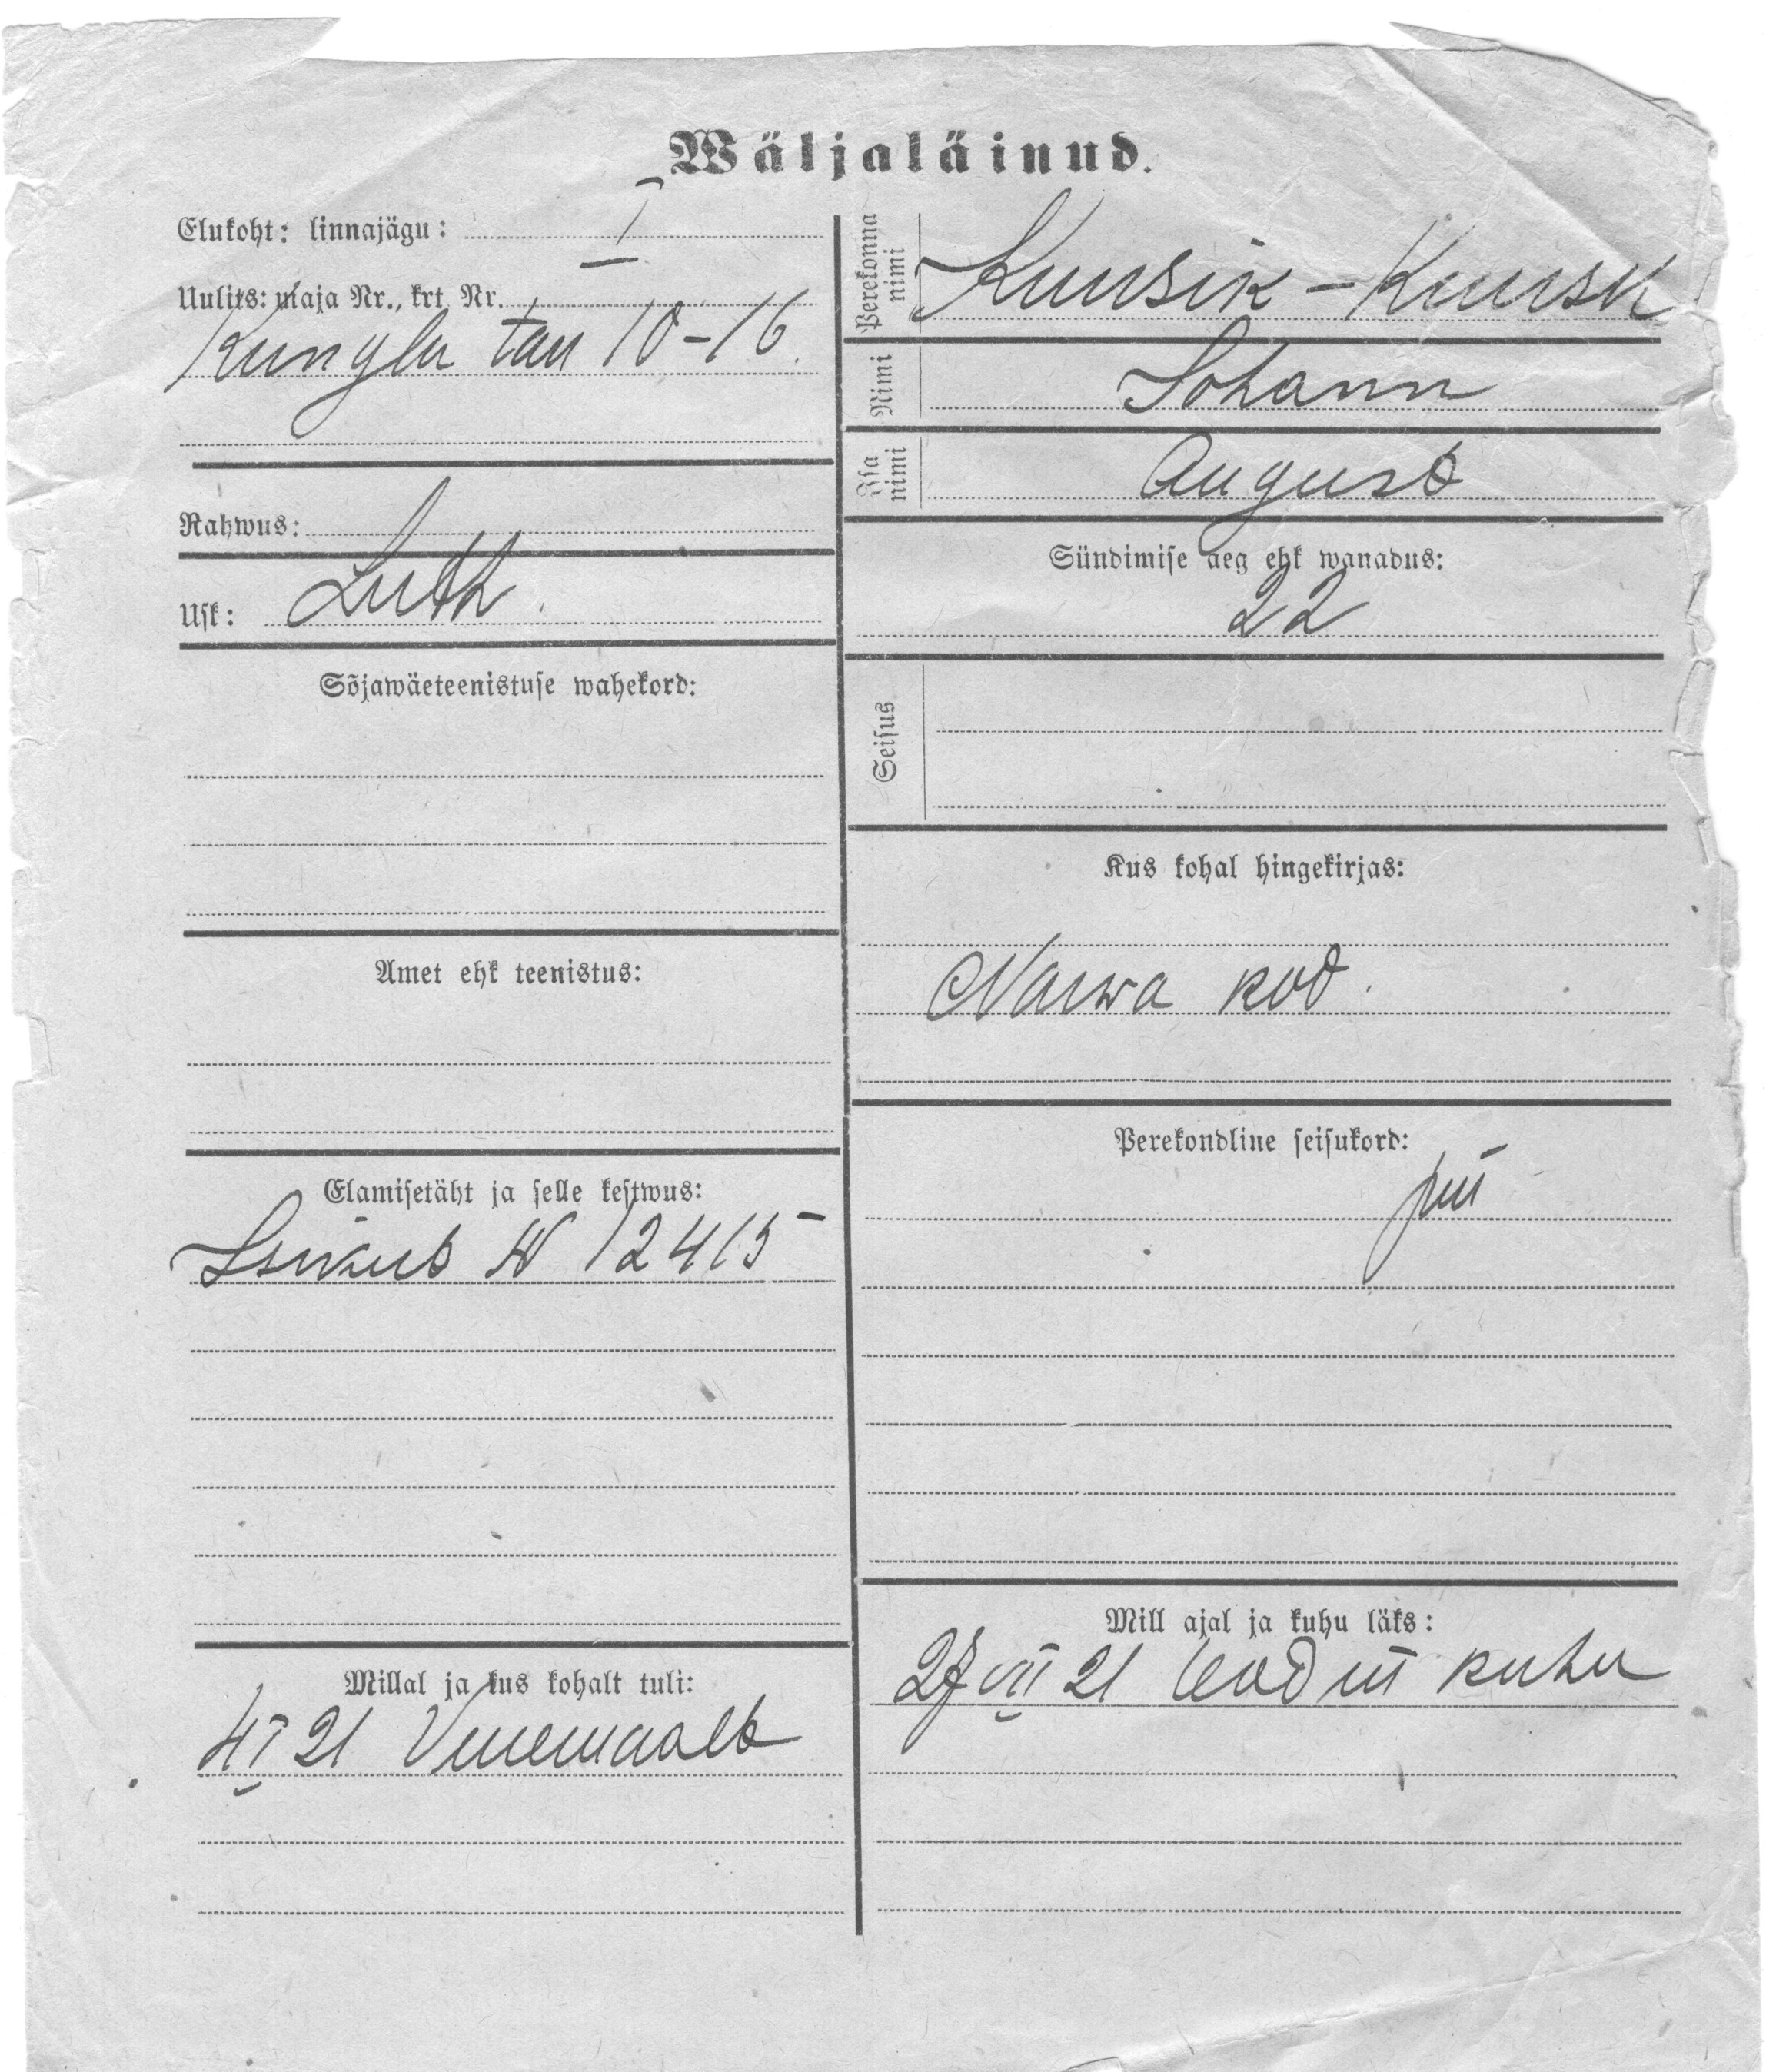 Wäljaläinud.
Elukoht: linnajägu: I
Uulits: maja Nr., krt. Nr.
Kungla tän 10-16.
Rahwus:
Usk: Luth.
Sõjawäeteenistuse wahekord:
Amet ehk teenistus:
Elamisetäht ja selle kestwus:
N 12415
Millal ja kus kohalt tuli:
4 I 21 Venemaalt
Perekonna nimi Kuusik - Kuusk
Nimi Johann
Isa nimi August
Sündimise aeg ehk wanadus:
22
Seisus
Kus kohal hingekirjas:
Narwa kod.
Perekondline seisukord:
Mill ajal ja kuhu läks:
27 VII 21 kuhu